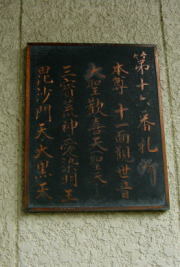 第十六番札所
本尊十一面観世音
大聖歓喜天聖天
三宝荒神愛染明王
毘沙門天大黒天